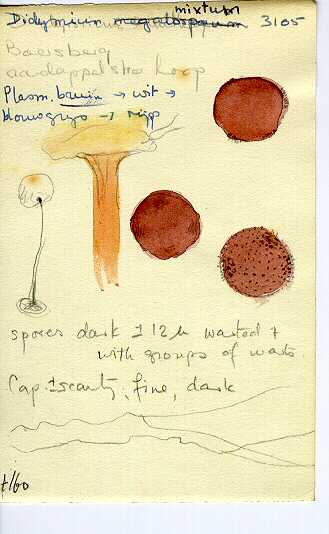 mixtum
Didymium megalosporum 3105
Baersberg
aardappelstro hoop
Plasm. bruin → wit →
blauwgrijs →
spores dark ± 12 µ warted +
with groups of warts
Cap. ± scanty, fine, dark
t/60